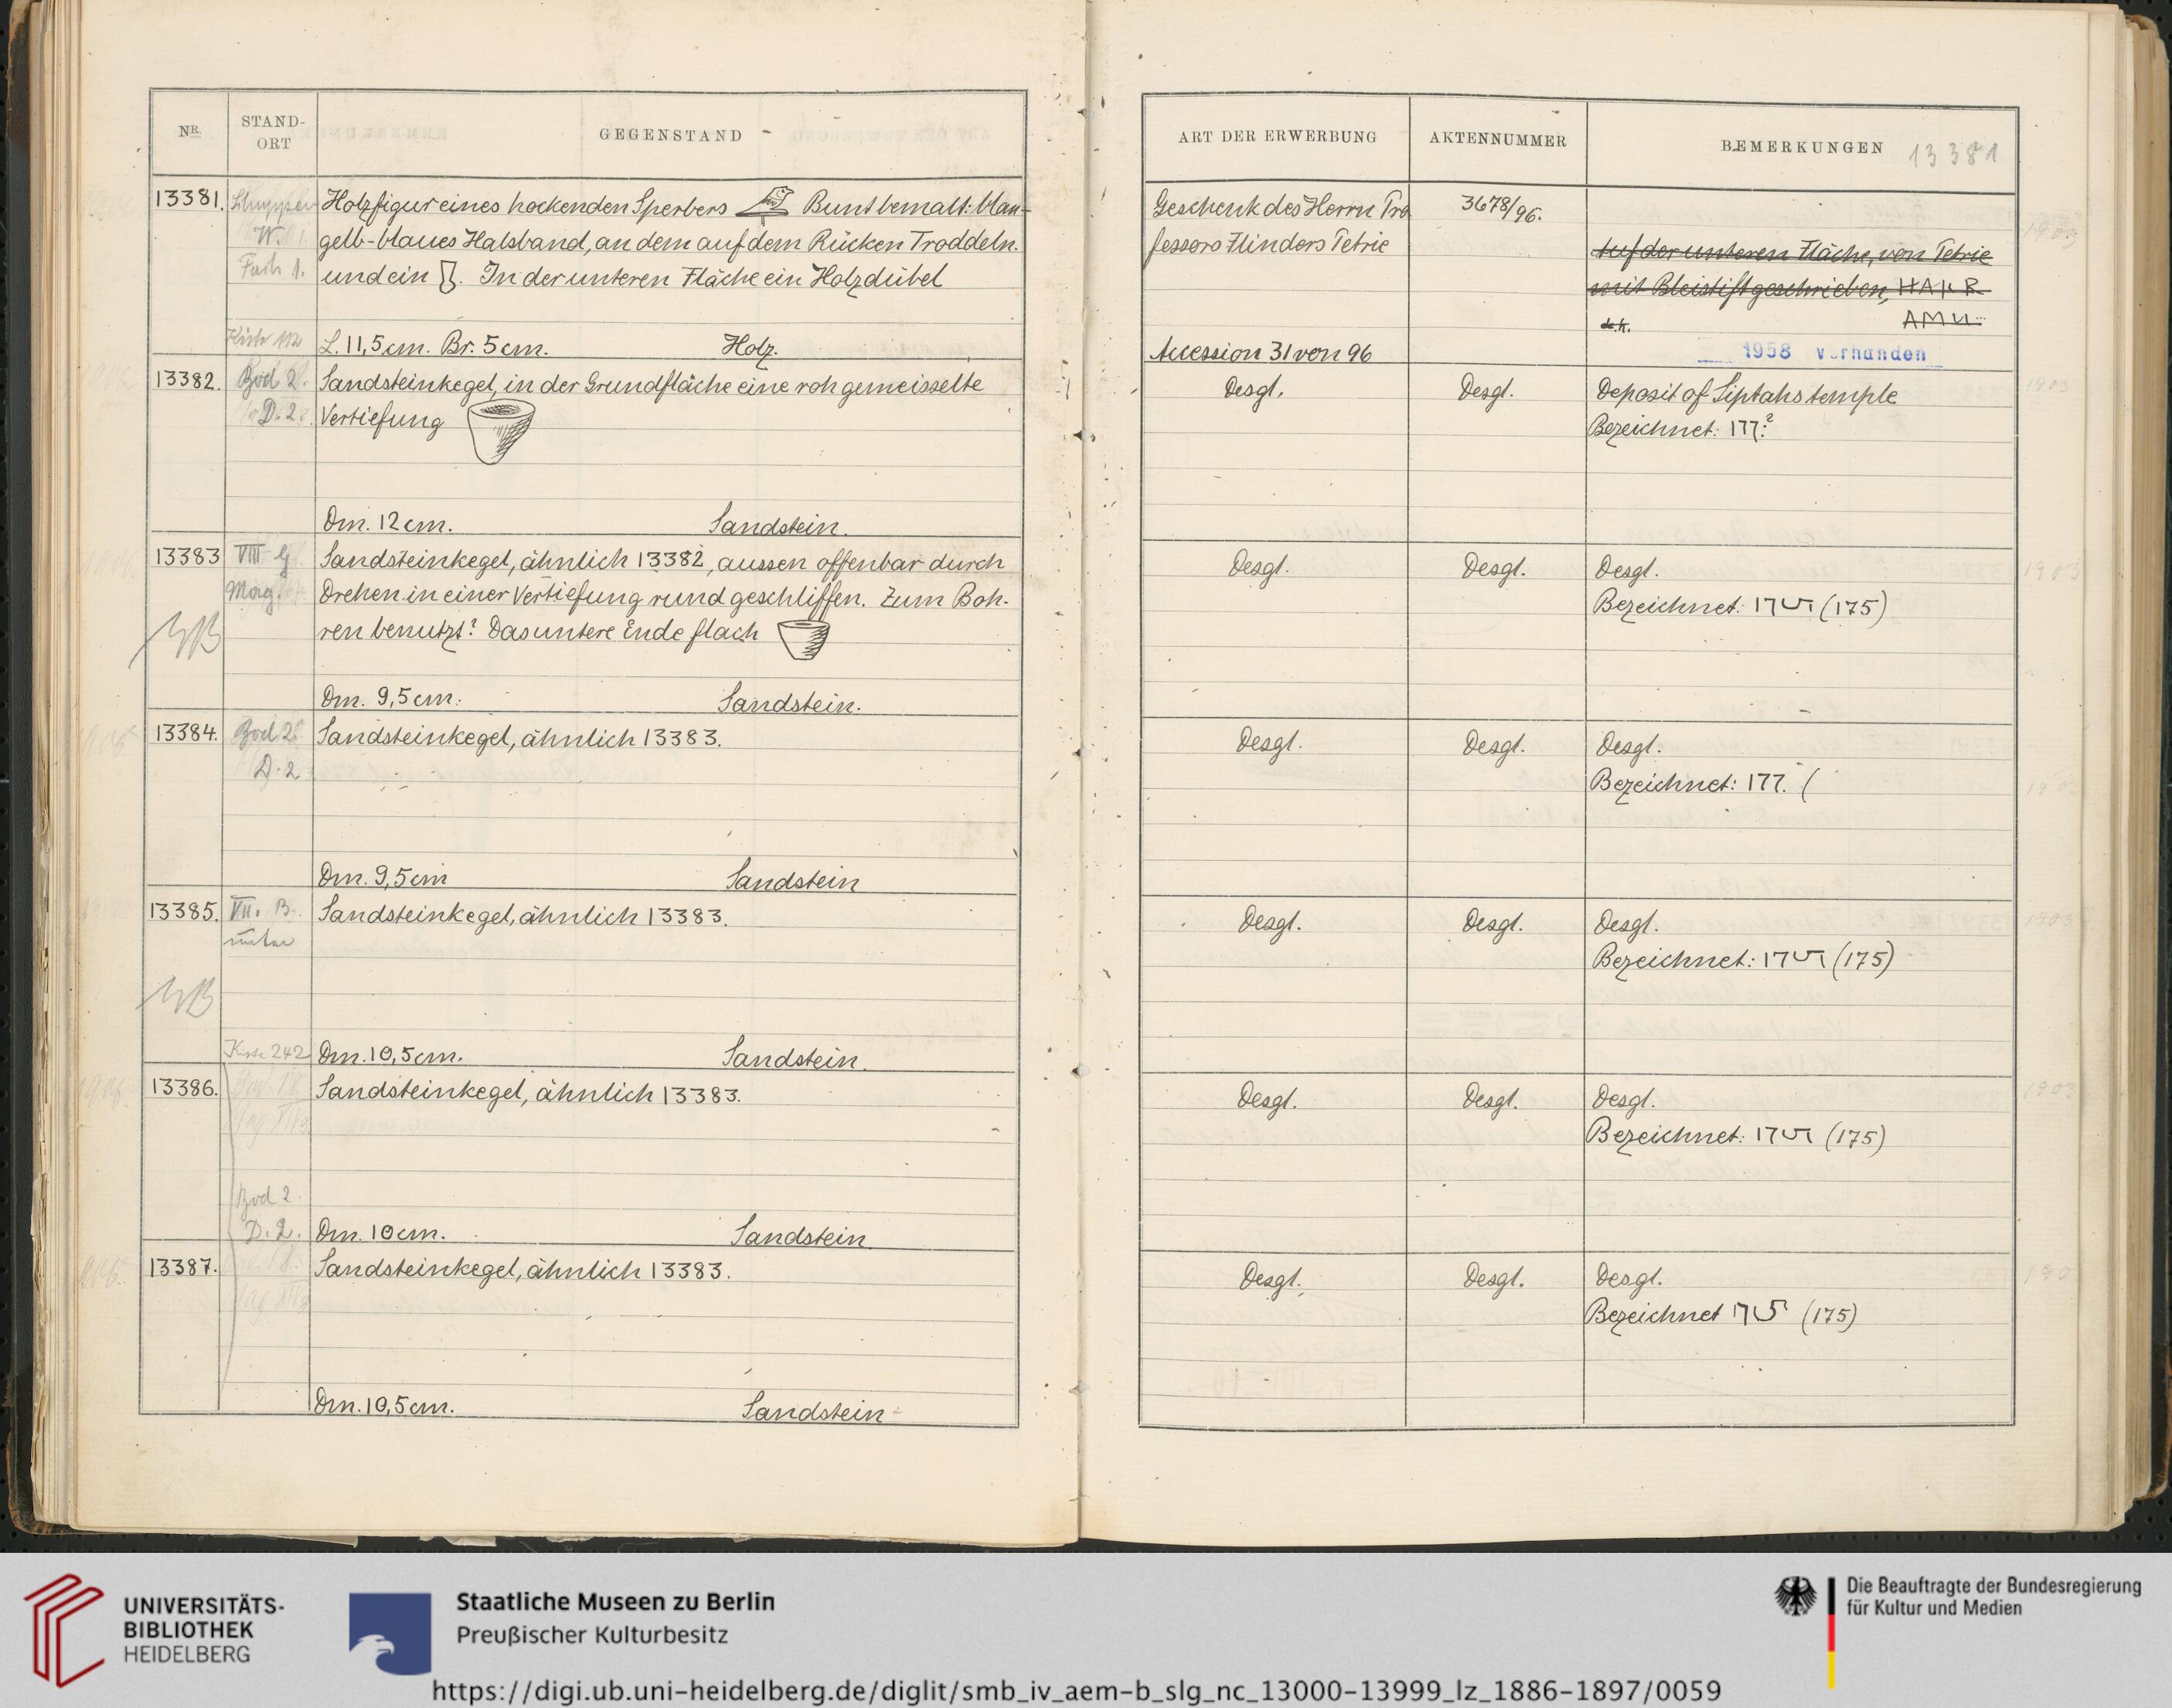 NR.
STAND-
ORT
GEGENSTAND
13381.
W.
Fach 1.
Kiste 112
Holzfigur eines hockenden Sperbers Bunt bemalt: blau-
gelb-blaues Halsband, an dem auf dem Rücken Troddeln.
und ein . In der unteren Fläche ein Holzdübel
L. 11,5 cm. Br. 5 cm. Holz.
13382.
Bod 2.
D. 2.
Sandsteinkegel, in der Grundfläche eine roh gemeisselte
Vertiefung
Dm. 12 cm. Sandstein.
13383
VIII G
Mag.
Sandsteinkegel, ähnlich 13382, aussen offenbar durch
Drehen in einer Vertiefung rund geschliffen. Zum Boh-
ren benutzt? Das untere Ende flach
Dm. 9,5 cm. Sandstein.
13384.
Bod 2
D. 2
Sandsteinkegel, ähnlich 13383.
Dm. 9,5 cm Sandstein
13385.
VII. B.
unten
Kiste 242
Sandsteinkegel, ähnlich 13383.
Dm. 10,5 cm. Sandstein.
13386.
Bod 2.
D. 2.
Sandsteinkegel, ähnlich 13383.
Dm. 10 cm. Sandstein.
13387.
Sandsteinkegel, ähnlich 13383.
Dm. 10,5 cm. Sandstein
ART DER ERWERBUNG
AKTENNUMMER
BEMERKUNGEN
13381
Geschenk des Herrn Pro
fessors Flinders Petrie
Accession 31 von 96
3678/96.
Auf der unteren Fläche, von Petrie
mit Bleistift geschrieben, HAKR
AMU
1958 vorhanden
Desgl. Desgl. Deposit of Siptahs temple
Bezeichnet: 177.?
Desgl. Desgl. Desgl.
Bezeichnet: 175 (175)
Desgl. Desgl. Desgl.
Bezeichnet: 177. (
Desgl. Desgl. Desgl.
Bezeichnet: 175 (175)
Desgl. Desgl. Desgl.
Bezeichnet: 175 (175)
Desgl. Desgl. Desgl.
Bezeichnet 175 (175)
UNIVERSITÄTS-
BIBLIOTHEK
HEIDELBERG
Staatliche Museen zu Berlin
Preußischer Kulturbesitz
Die Beauftragte der Bundesregierung
für Kultur und Medien
https://digi.ub.uni-heidelberg.de/diglit/smb_iv_aem-b_slg_nc_13000-13999_lz_1886-1897/0059